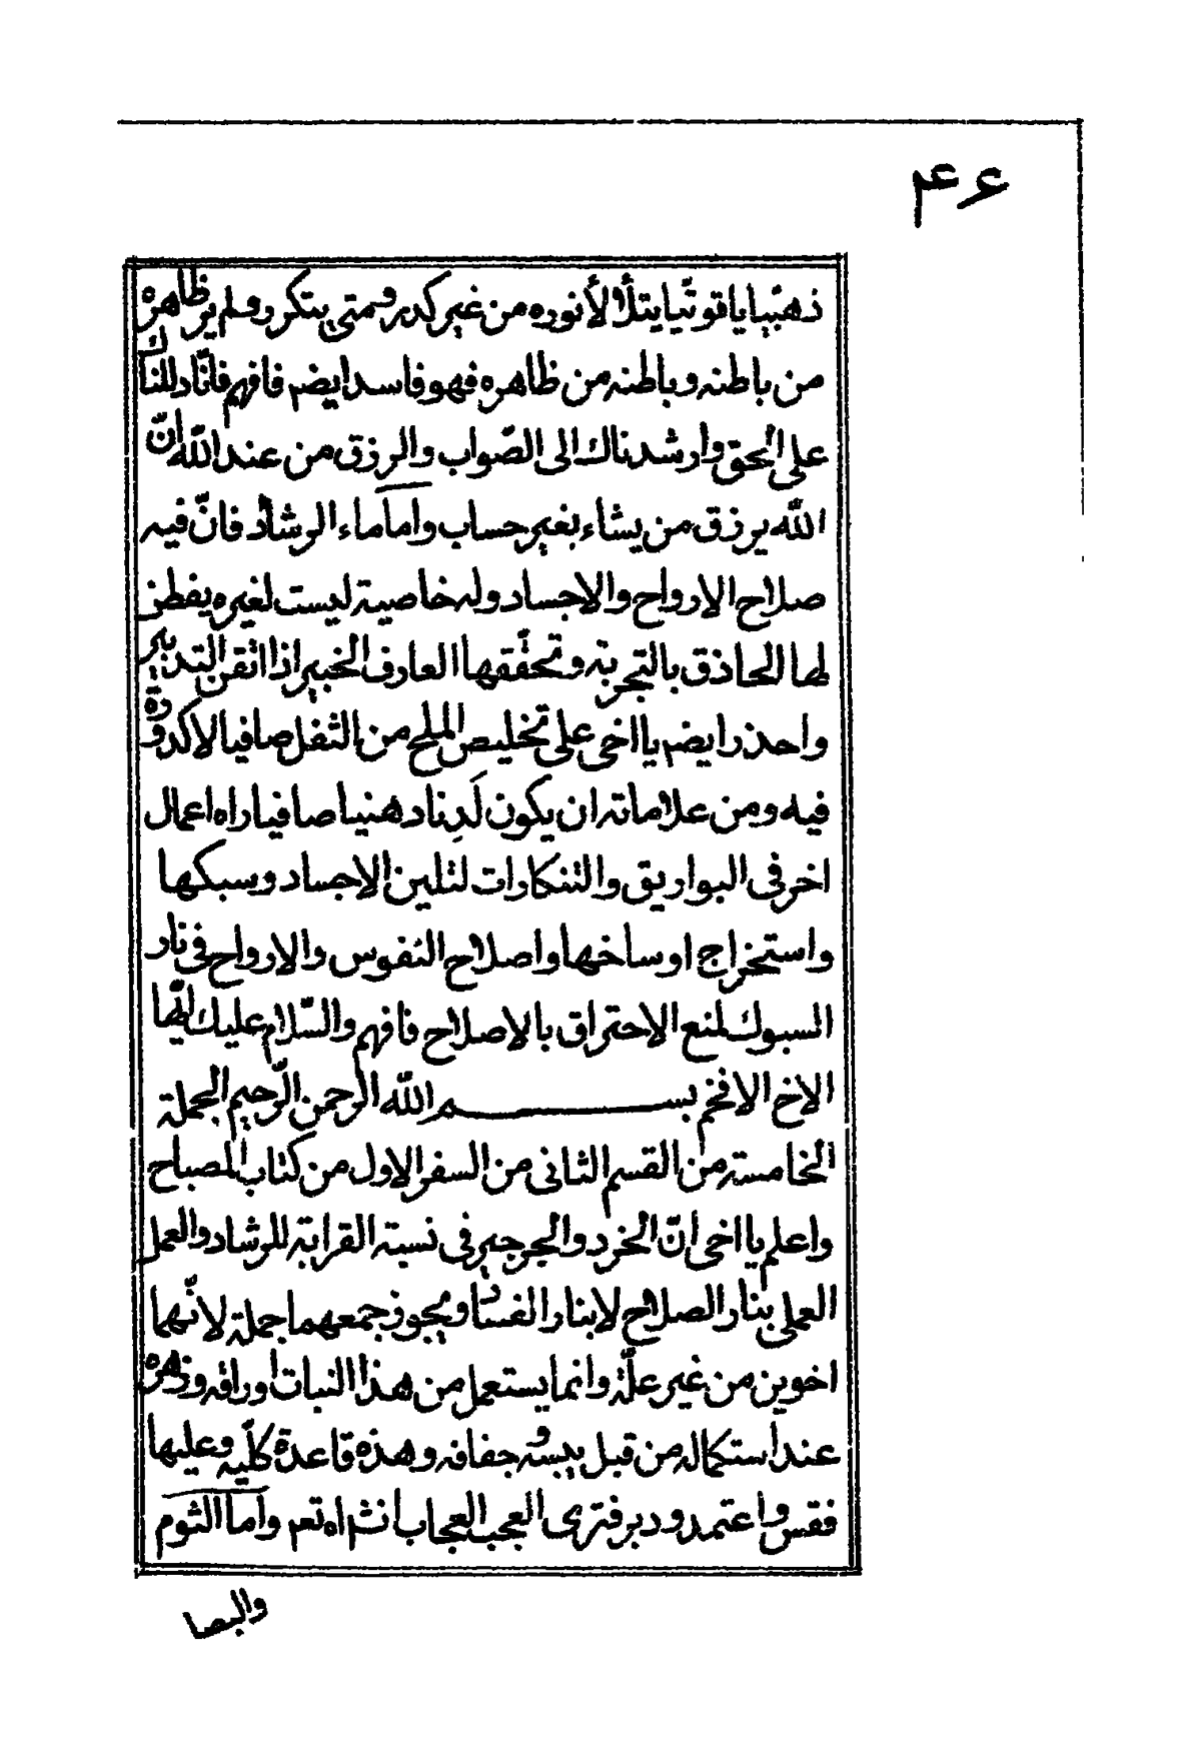 ۴۶
ذهبيا ياقوتيا يتلألأ نوره من غير كدر ومتى يتكرر ولم ير ظاهره
من باطنه وباطنه من ظاهره فهو فاسد ايضم فافهم فانّا دللناك
على الحق وارشدناك الى الصّواب والرزق من عند الله انّ
الله يرزق من يشاء بغير حساب واما ماء الرشاد فانّ فيه
صلاح الارواح والاجساد وله خاصية ليست لغيره يفطن
لها الحاذق بالتجربة وتحقّقها العارف الخبير اذا اتقن التدبير
واحذر ايضم يا اخى على تخليص الملح من الثفل صافيا لا كدورة
فيه ومن علاماته ان يكون لَدِنا دهنيا صافيا راه اعمال
اخر فى البواريق والتنكارات لتلين الاجساد وسبكها
واستخراج اوساخها واصلاح النفوس والارواح فى نار
السبوك لمنع الاحتراق بالاصلاح فافهم والسّلام عليك ايّها
الاخ الافخم بسم الله الرحمن الرّحيم الجملة
الخامسة من القسم الثانى من السفر الاول من كتاب المصباح
واعلم يا اخى انّ الخرد والجرجير فى نسبة القرابة للرشاد والعمل
العملى بنار الصلاح لا بنار الفساد ويجوز جمعهما جملة لانّهما
اخوين من غير علّة وانما يستعمل من هذا النبات اوراقه وزهره
عند استكماله من قبل يبسه وجفافه وهذه قاعدة كلّيه وعليها
فقس واعتمد ودبر فترى العجب العجاب انشاه تعم واما الثوم
والبصا